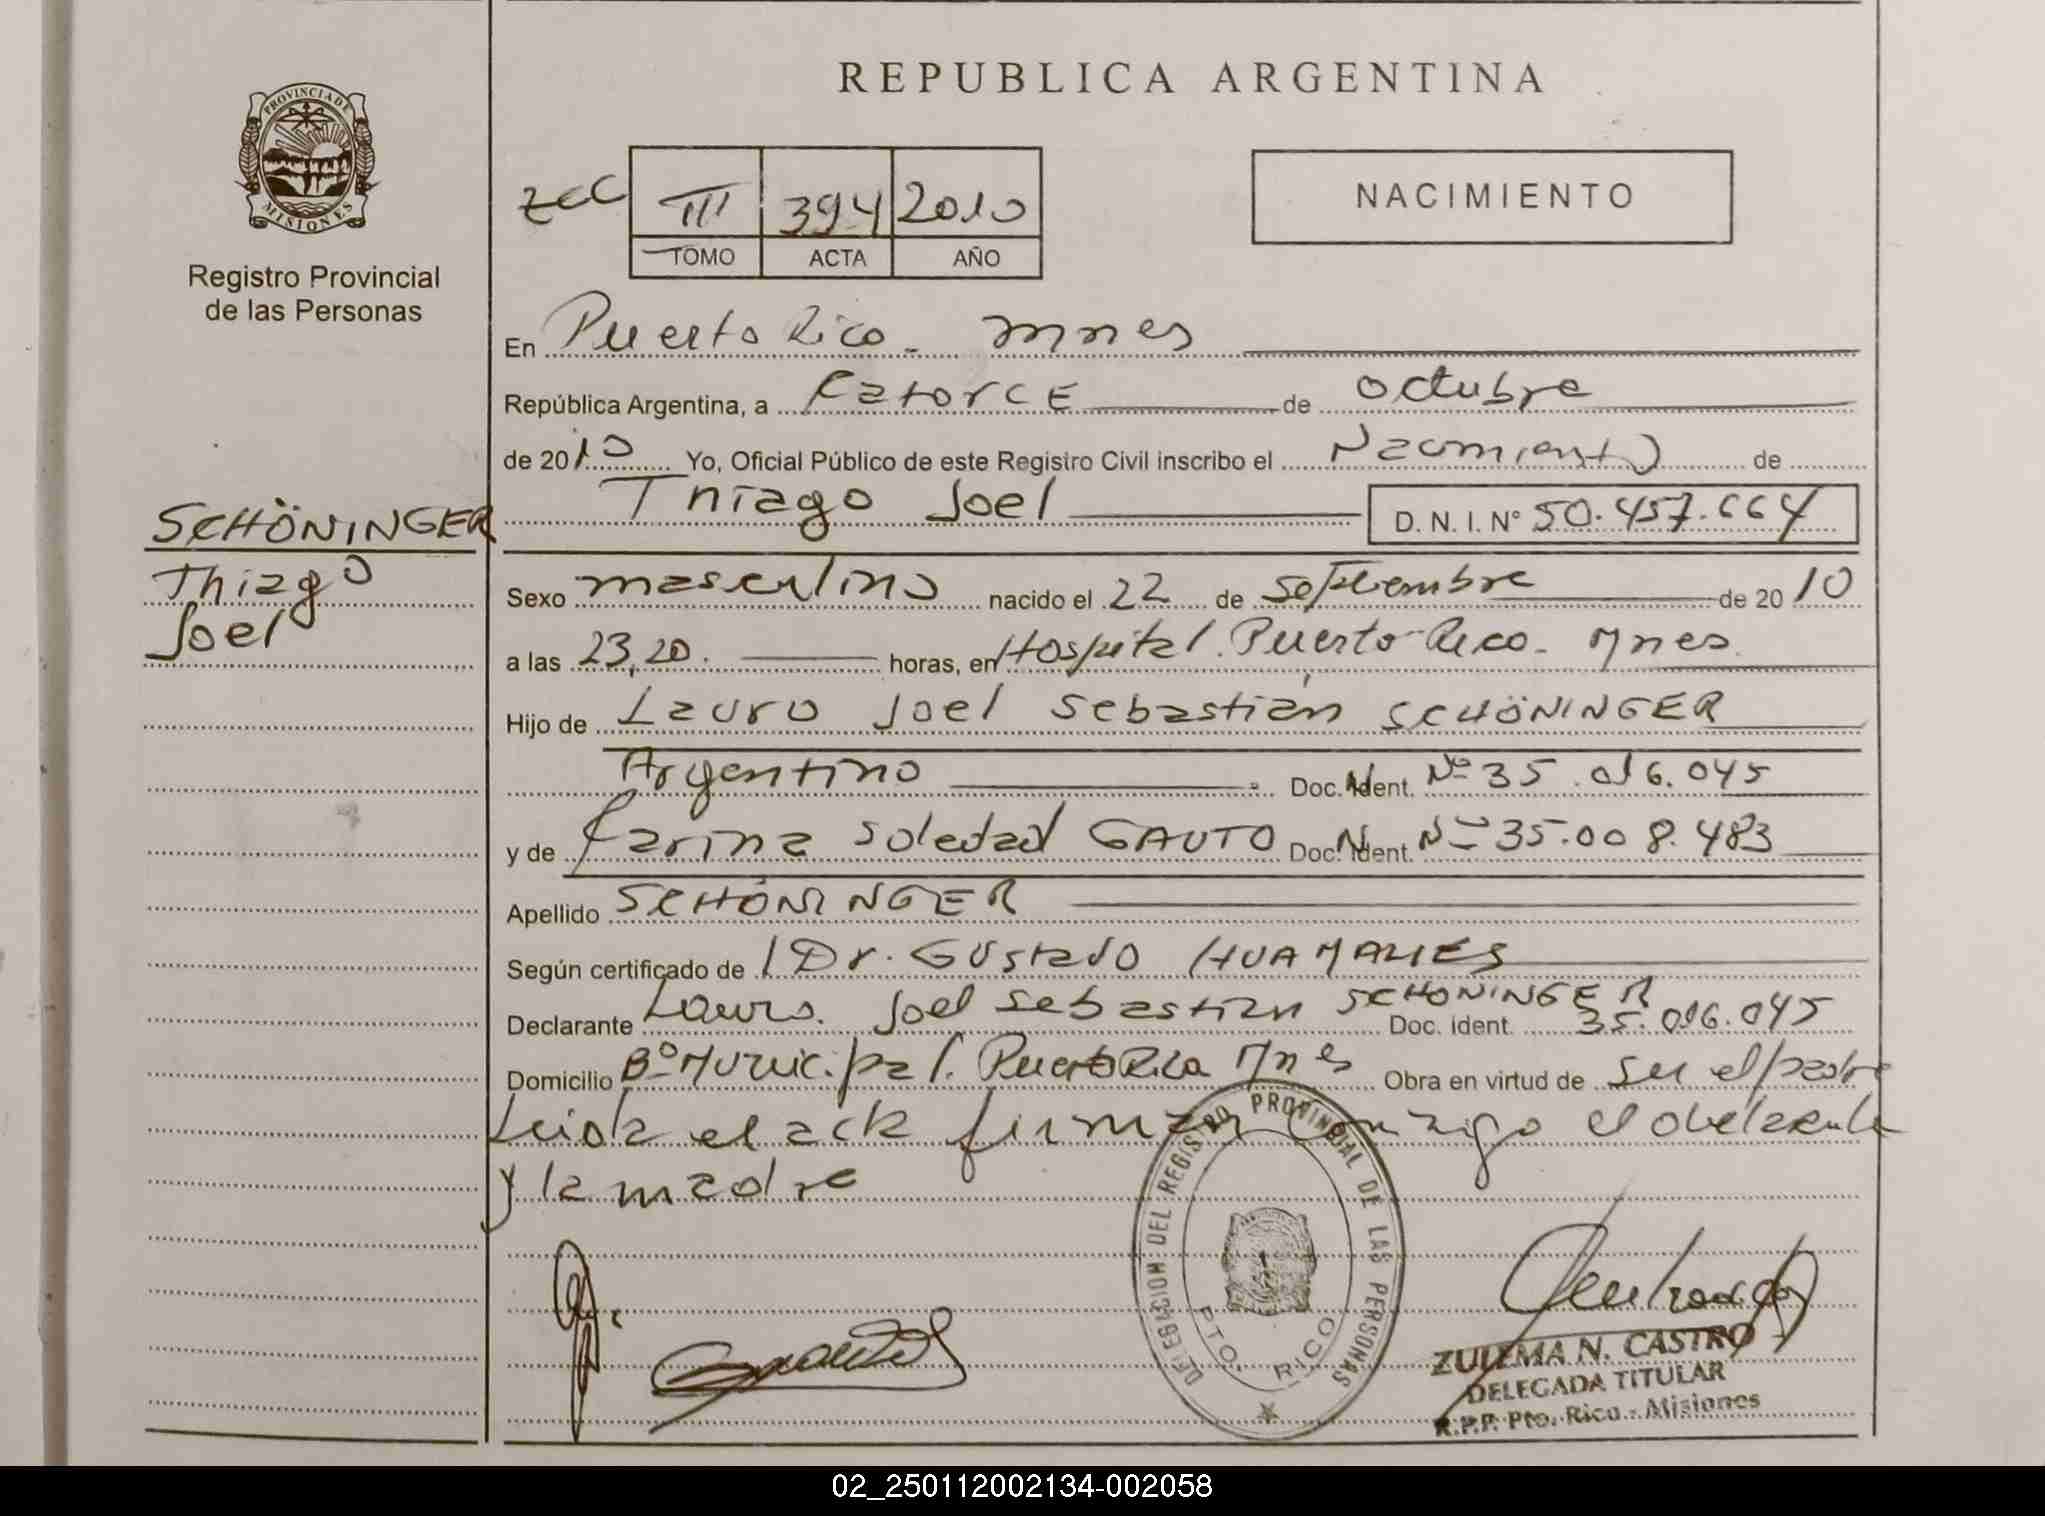 REPUBLICA ARGENTINA
PROVINCIA DE
MISIONES
Registro Provincial
de las Personas
III 394 2010
TOMO ACTA AÑO
NACIMIENTO
En Puerto Rico - mnes
República Argentina, a Catorce de octubre
de 2010 Yo, Oficial Público de este Registro Civil inscribo el Nacimiento de
Thiago Joel D. N. I. Nº 50.457.664
SCHÖNINGER
Thiago
Joel
Sexo masculino nacido el 22 de septiembre de 2010
a las 23,20. horas, en Hospital. Puerto Rico - Mnes.
Hijo de Lauro Joel Sebastián SCHÖNINGER
Argentino Doc. Ident. Nº 35.016.045
y de Karina Soledad GAUTO Doc. Ident. Nº 35.008.483
Apellido SCHÖNINGER
Según certificado de Dr. Gustavo HUAMALIES
Declarante Lauro. Joel Sebastian SCHONINGER Doc. Ident. 35.016.045
Domicilio Bº Municipal. Puerto Rico Mnes Obra en virtud de ser el padre
Leida el acta firman conmigo el declarante
y la madre
DELEGACION DEL REGISTRO PROVINCIAL DE LAS PERSONAS
PTO. RICO
ZULEMA N. CASTRO
DELEGADA TITULAR
R.P.P. Pto. Rico - Misiones
02_250112002134-002058